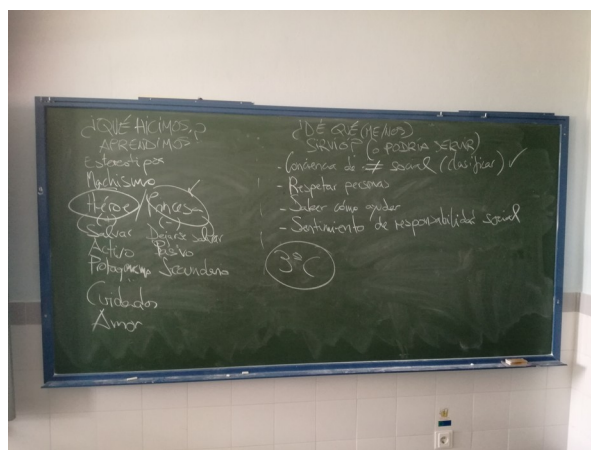 ¿QUÉ HICIMOS,?
APRENDIMOS
Estereotipos
Machismo
Héroe / Princesa
Salvar Dejarse salvar
Activo Pasivo
Protagonismo Secundario
Cuidados
Amor
¿DE QUÉ (ME/NOS)
SIRVIÓ? (O PODRÍA SERVIR)
- Conciencia de ≠ social (clasificar) ✓
- Respetar personas
- Saber cómo ayudar
- Sentimiento de responsabilidad social
3º C